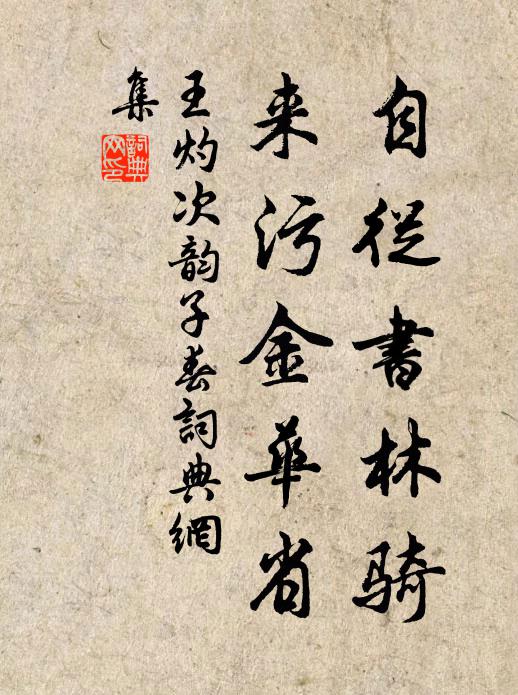 自從書林騎
来污金華省
王灼次韵子春詞典網
集
詞典网印